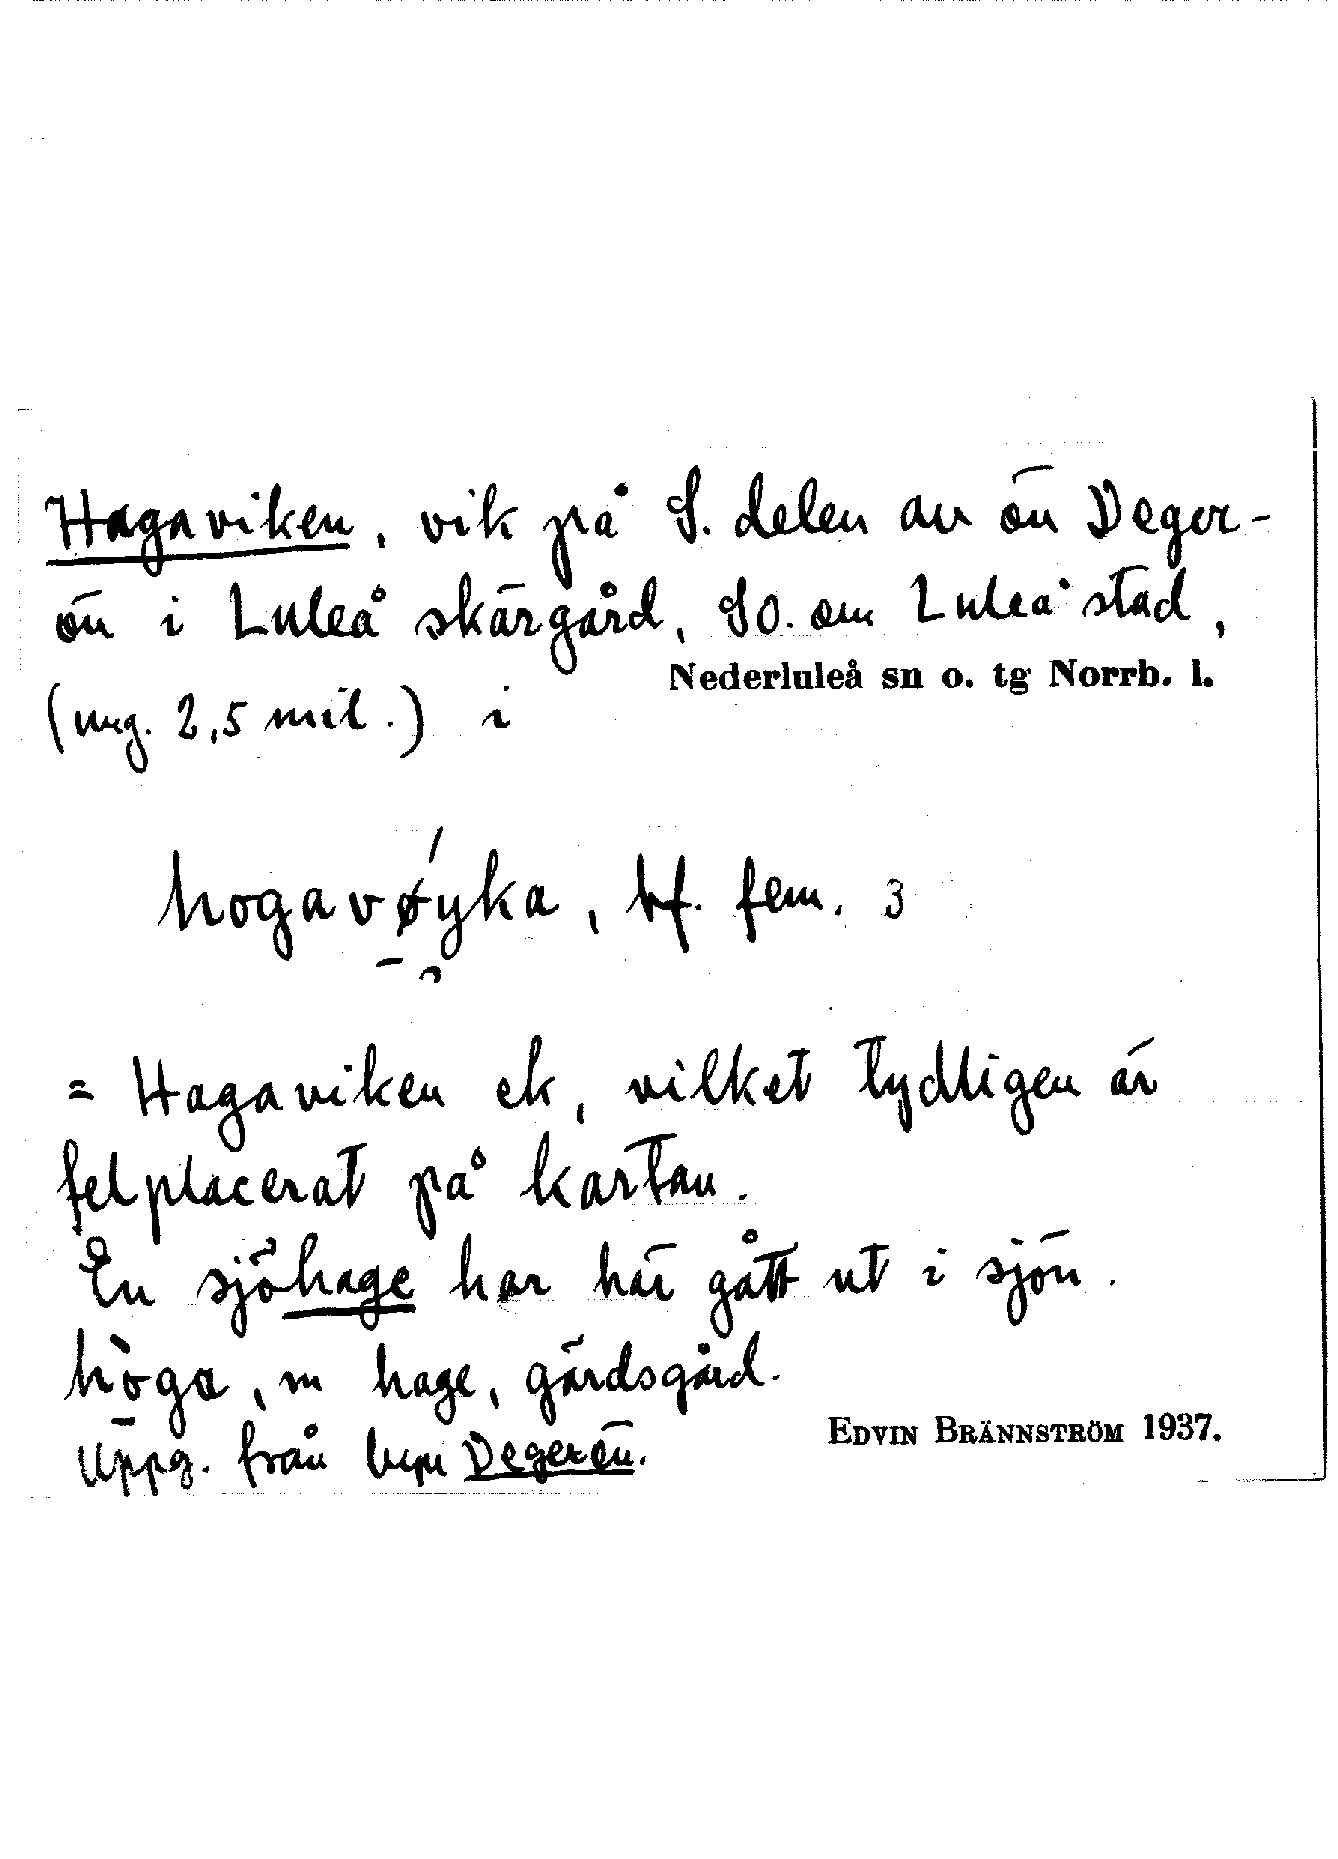 Hagaviken, vik på S. delen av ön Deger-
ön i Luleå skärgård, SO. om Luleå stad,
Nederluleå sn o. tg Norrb. l.
(ung. 2,5 mil.) i
hogavøyka, bf. fem. 3
= Hagaviken ek, vilket tydligen är
felplacerat på kartan.
En sjöhage har här gått ut i sjön.
hòga, m hage, gärdsgård.
Uppg. från byn Degerön.
EDVIN BRÄNNSTRÖM 1937.